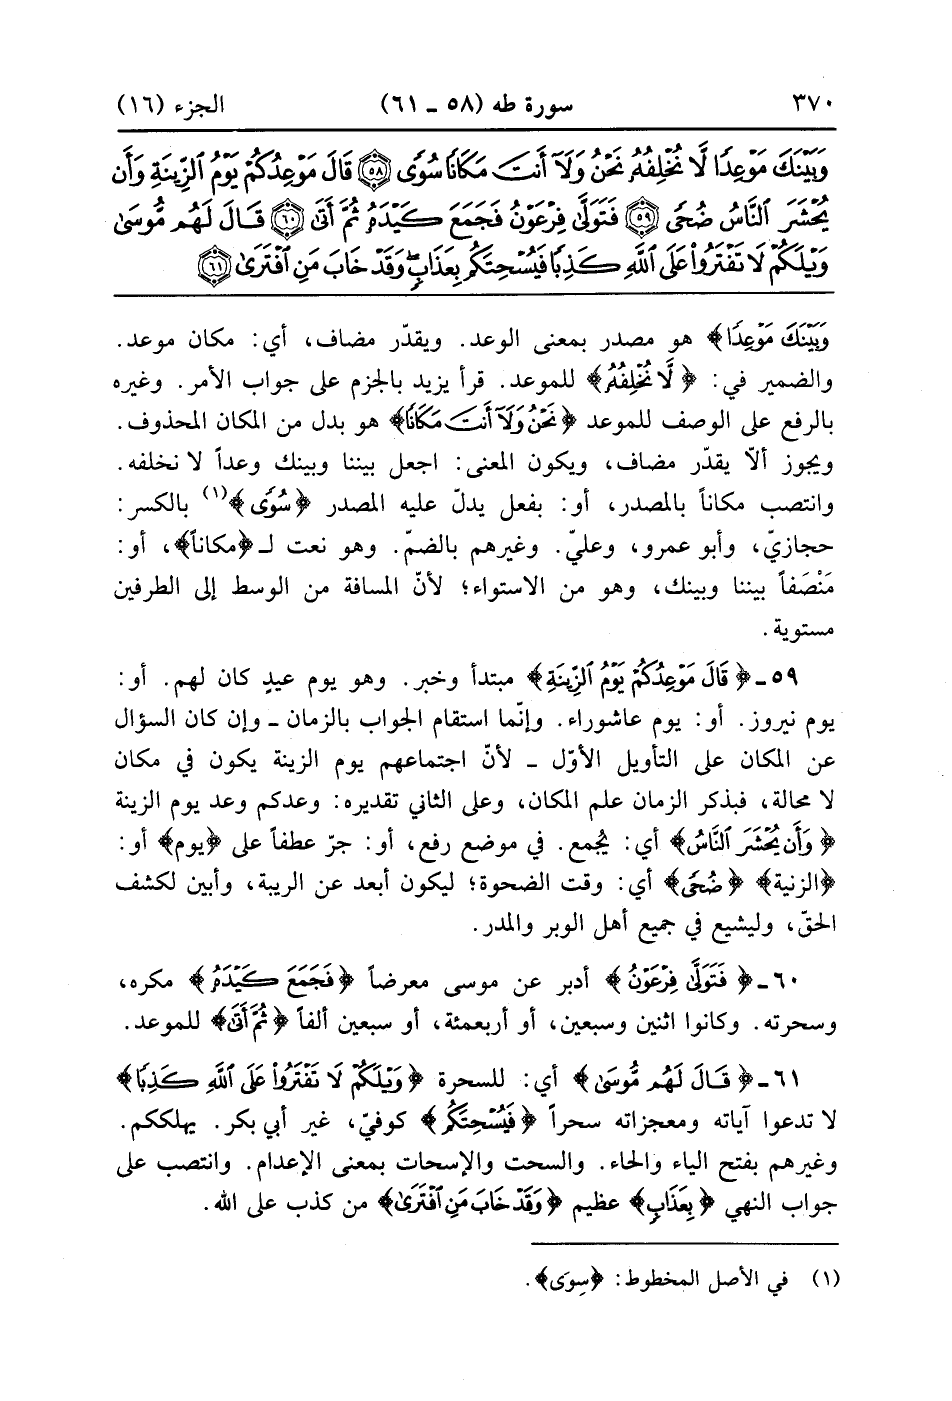 ٣٧٠ سورة طه (٥٨ ـ ٦١) الجزء (١٦)
وَبَيْنَكَ مَوْعِدًا لَّا نُخْلِفُهُۥ نَحْنُ وَلَآ أَنتَ مَكَانًا سُوًى ﴿٥٨﴾ قَالَ مَوْعِدُكُمْ يَوْمُ ٱلزِّينَةِ وَأَن
يُحْشَرَ ٱلنَّاسُ ضُحًى ﴿٥٩﴾ فَتَوَلَّىٰ فِرْعَوْنُ فَجَمَعَ كَيْدَهُۥ ثُمَّ أَتَىٰ ﴿٦٠﴾ قَالَ لَهُم مُّوسَىٰ
وَيْلَكُمْ لَا تَفْتَرُوا۟ عَلَى ٱللَّهِ كَذِبًا فَيُسْحِتَكُم بِعَذَابٍ ۖ وَقَدْ خَابَ مَنِ ٱفْتَرَىٰ ﴿٦١﴾
وَبَيْنَكَ مَوْعِدًا﴾ هو مصدر بمعنى الوعد. ويقدّر مضاف، أي: مكان موعد.
والضمير في: ﴿لَّا نُخْلِفُهُۥ﴾ للموعد. قرأ يزيد بالجزم على جواب الأمر. وغيره
بالرفع على الوصف للموعد ﴿نَحْنُ وَلَآ أَنتَ مَكَانًا﴾ هو بدل من المكان المحذوف.
ويجوز ألاّ يقدّر مضاف، ويكون المعنى: اجعل بيننا وبينك وعداً لا نخلفه.
وانتصب مكاناً بالمصدر، أو: بفعل يدلّ عليه المصدر ﴿سُوًى﴾(١) بالكسر:
حجازيّ، وأبو عمرو، وعليّ. وغيرهم بالضمّ. وهو نعت لـ﴿مكاناً﴾، أو:
مَنْصَفاً بيننا وبينك، وهو من الاستواء؛ لأنّ المسافة من الوسط إلى الطرفين
مستوية.
٥٩ ـ ﴿قَالَ مَوْعِدُكُمْ يَوْمُ ٱلزِّينَةِ﴾ مبتدأ وخبر. وهو يوم عيدٍ كان لهم. أو:
يوم نيروز. أو: يوم عاشوراء. وإنّما استقام الجواب بالزمان ـ وإن كان السؤال
عن المكان على التأويل الأوّل ـ لأنّ اجتماعهم يوم الزينة يكون في مكان
لا محالة، فبذكر الزمان علم المكان، وعلى الثاني تقديره: وعدكم وعد يوم الزينة
﴿وَأَن يُحْشَرَ ٱلنَّاسُ﴾ أي: يُجمع. في موضع رفع، أو: جرّ عطفاً على ﴿يوم﴾ أو:
﴿الزنية﴾ ﴿ضُحًى﴾ أي: وقت الضحوة؛ ليكون أبعد عن الريبة، وأبين لكشف
الحقّ، وليشيع في جميع أهل الوبر والمدر.
٦٠ ـ ﴿فَتَوَلَّىٰ فِرْعَوْنُ﴾ أدبر عن موسى معرضاً ﴿فَجَمَعَ كَيْدَهُۥ﴾ مكره،
وسحرته. وكانوا اثنين وسبعين، أو أربعمئة، أو سبعين ألفاً ﴿ثُمَّ أَتَىٰ﴾ للموعد.
٦١ ـ ﴿قَالَ لَهُم مُّوسَىٰ﴾ أي: للسحرة ﴿وَيْلَكُمْ لَا تَفْتَرُوا۟ عَلَى ٱللَّهِ كَذِبًا﴾
لا تدعوا آياته ومعجزاته سحراً ﴿فَيُسْحِتَكُم﴾ كوفيّ، غير أبي بكر. يهلككم.
وغيرهم بفتح الياء والحاء. والسحت والإسحات بمعنى الإعدام. وانتصب على
جواب النهي ﴿بِعَذَابٍ﴾ عظيم ﴿وَقَدْ خَابَ مَنِ ٱفْتَرَىٰ﴾ من كذب على الله.
(١) في الأصل المخطوط: ﴿سِوَى﴾.